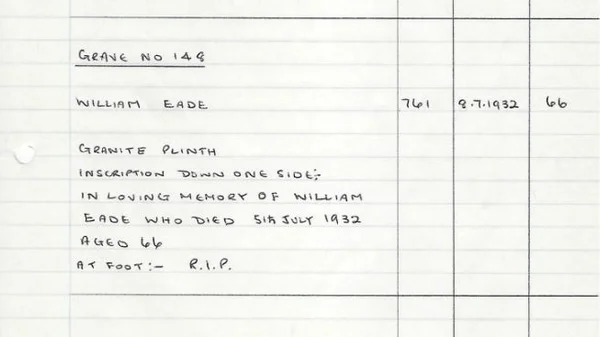 GRAVE NO 148
WILLIAM EADE 761 8.7.1932 66
GRANITE PLINTH
INSCRIPTION DOWN ONE SIDE:-
IN LOVING MEMORY OF WILLIAM
EADE WHO DIED 5th JULY 1932
AGED 66
AT FOOT:- R.I.P.